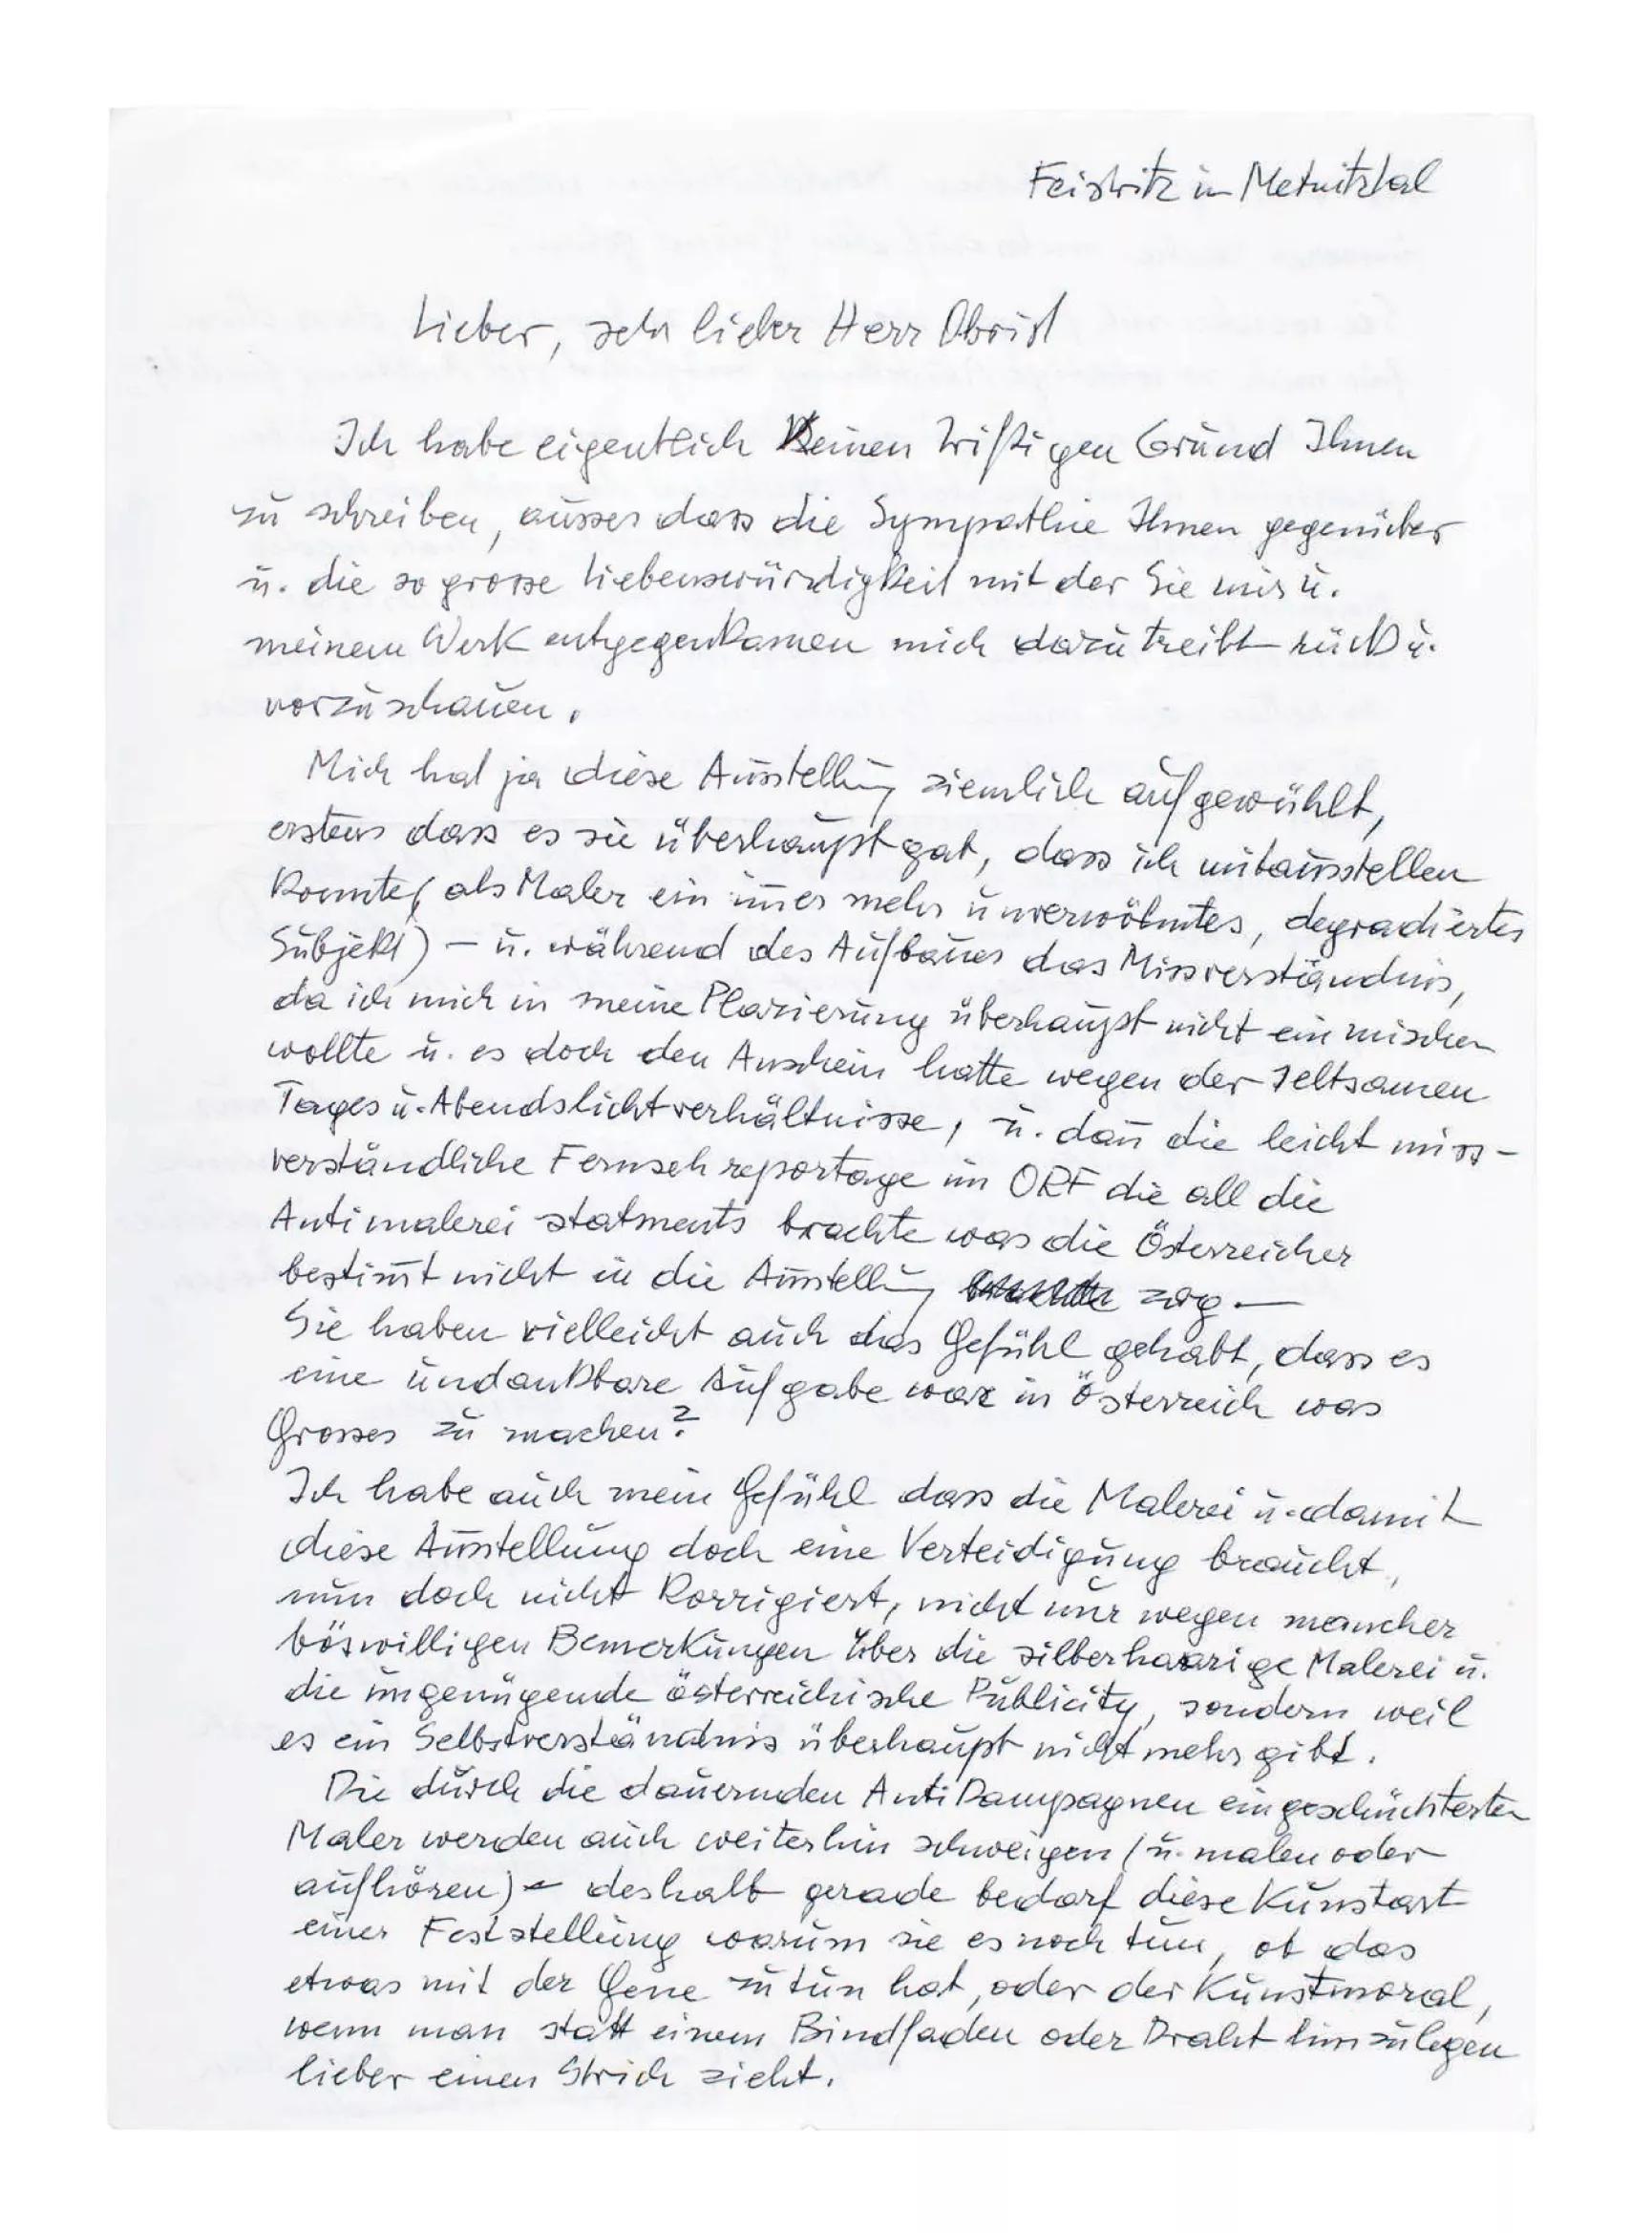 Feistritz im Metnitztal
Lieber, sehr lieber Herr Obrist
Ich habe eigentlich keinen triftigen Grund Ihnen
zu schreiben, ausser dass die Sympathie Ihnen gegenüber
u. die so grosse Liebenswürdigkeit mit der Sie mir u.
meinem Werk entgegenkamen mich dazu treibt rück u.
vorzuschauen.
Mich hat ja diese Ausstellung ziemlich aufgewühlt,
erstens dass es sie überhaupt gab, dass ich mitausstellen
konnte (als Maler ein im̅er mehr unverwöhntes, degradiertes
Subjekt) – u. während des Aufbaues das Missverständnis,
da ich mich in meine Plazierung überhaupt nicht einmischen
wollte u. es doch den Anschein hatte wegen der seltsamen
Tages u. Abendslichtverhältnisse, u. dan̅ die leicht miss-
verständliche Fernsehreportage im ORF die all die
Antimalerei statments brachte was die Österreicher
bestim̅t nicht in die Ausstellung zog –
Sie haben vielleicht auch das Gefühl gehabt, dass es
eine undankbare Aufgabe war in Österreich was
Grosses zu machen?
Ich habe auch mein Gefühl dass die Malerei u. damit
diese Ausstellung doch eine Verteidigung braucht,
nun doch nicht korrigiert, nicht nur wegen mancher
böswilligen Bemerkungen über die silberhaarige Malerei u.
die ungenügende österreichische Publicity, sondern weil
es ein Selbstverständnis überhaupt nicht mehr gibt.
Die durch die dauernden Antikampagnen eingeschüchterten
Maler werden auch weiterhin schweigen (u. malen oder
aufhören) – deshalb gerade bedarf diese Kunstart
einer Feststellung warum sie es noch tun, ob das
etwas mit der Gene zu tun hat, oder der Kunstmoral,
wenn man statt einem Bindfaden oder Draht hinzulegen
lieber einen Strich zieht.